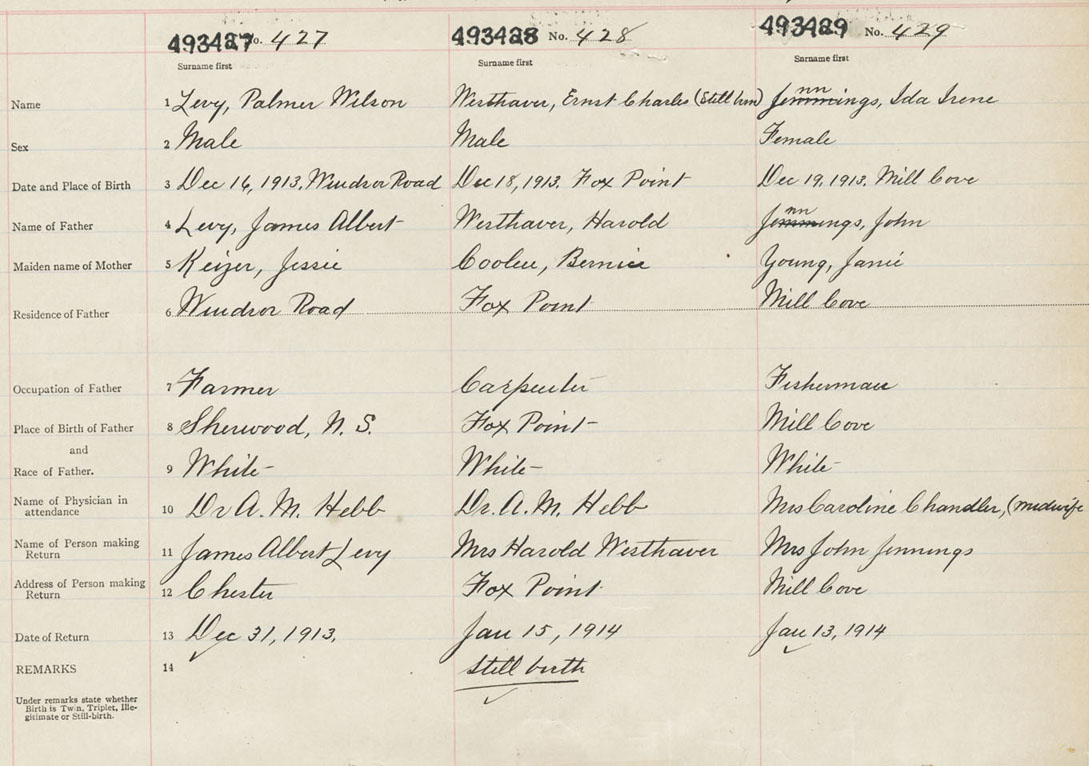 493427 No. 427 493428 No. 428 493429 No. 429
Surname first Surname first Surname first
Name 1 Levy, Palmer Wilson Westhaver, Ernst Charles (Still born) Jennings, Ida Irene
Sex 2 Male Male Female
Date and Place of Birth 3 Dec 16, 1913. Windsor Road Dec 18, 1913. Fox Point Dec 19, 1913. Mill Cove
Name of Father 4 Levy, James Albert Westhaver, Harold Jennings, John
Maiden name of Mother 5 Keizer, Jessie Coolen, Bernice Young, Janie
Residence of Father 6 Windsor Road Fox Point Mill Cove
Occupation of Father 7 Farmer Carpenter Fisherman
Place of Birth of Father 8 Sherwood, N. S. Fox Point Mill Cove
and
Race of Father. 9 White White White
Name of Physician in
attendance 10 Dr A. M. Hebb Dr. A. M. Hebb Mrs Caroline Chandler, (midwife
Name of Person making
Return 11 James Albert Levy Mrs Harold Westhaver Mrs John Jennings
Address of Person making
Return 12 Chester Fox Point Mill Cove
Date of Return 13 Dec 31, 1913. Jan 15, 1914 Jan 13, 1914
REMARKS 14 Still birth
Under remarks state whether
Birth is Twin, Triplet, Ille-
gitimate or Still-birth.